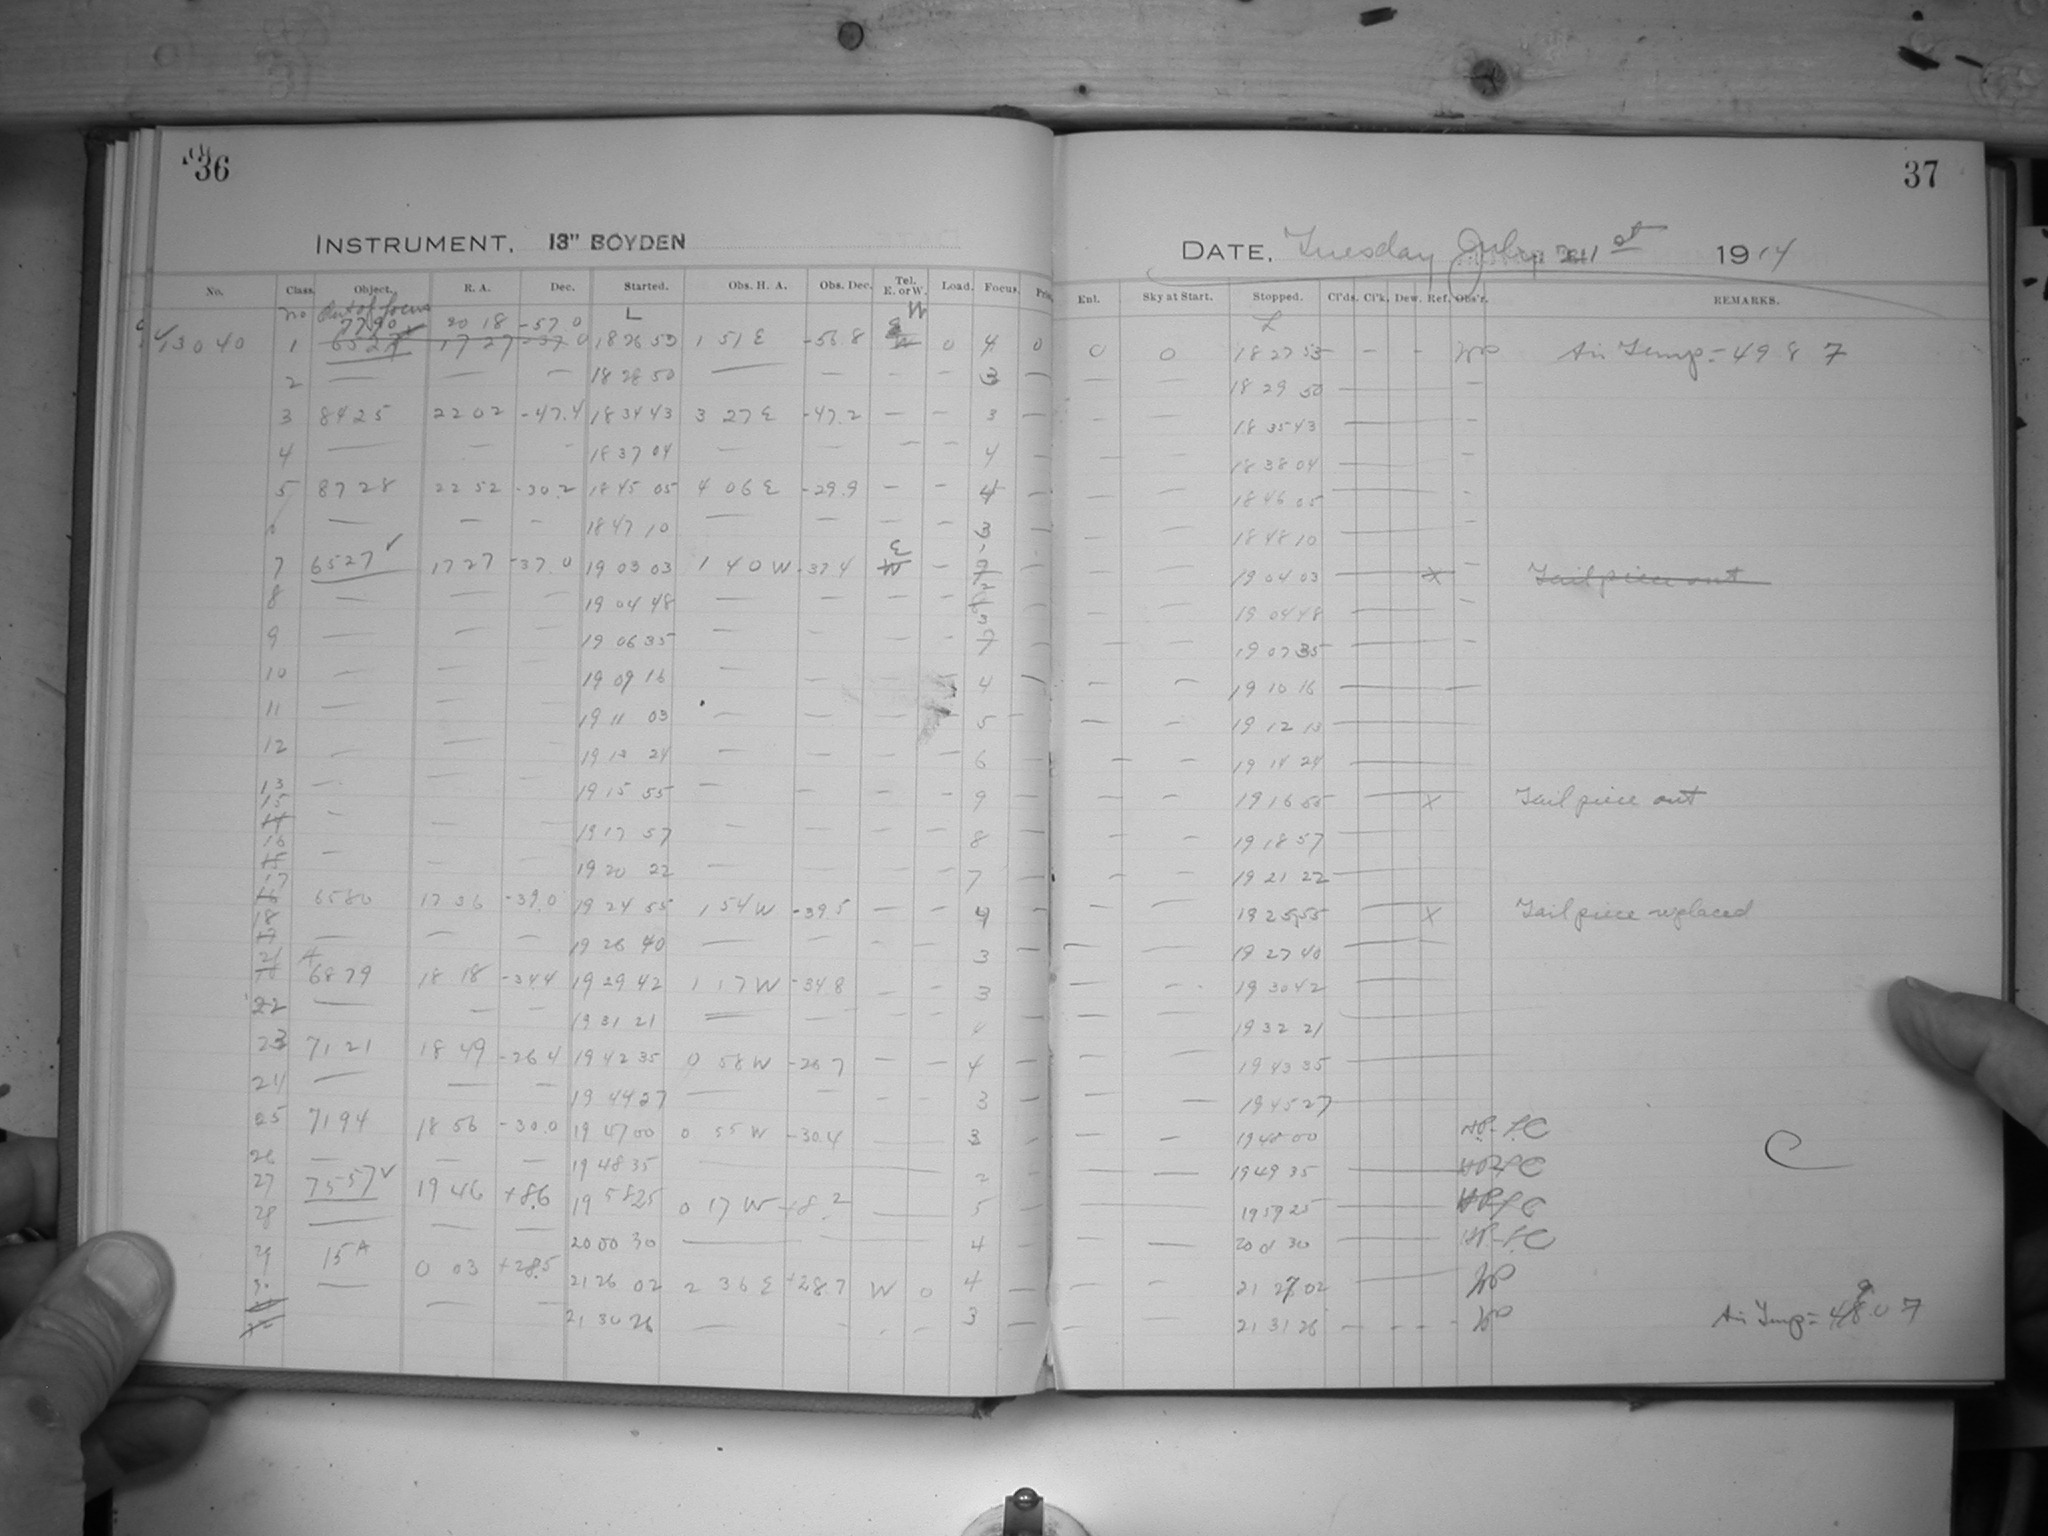 36
INSTRUMENT, 13" BOYDEN
No. Class. Object. R. A. Dec. Started. Obs. H. A. Obs. Dec. Tel. E. or W. Load. Focus.
no Out of focus L W
7790 20 18 -57.0
13040 1 6527 17 27 -37 0 18 26 53 1 51 E -56.8 W 0 4 0
2 — — — 18 28 50 — — — — 3 —
3 8425 22 02 -47.4 18 34 43 3 27 E -47.2 — — 3 —
4 — — — 18 37 04 — — — — 4 —
5 8728 22 52 -30.2 18 45 05 4 06 E -29.9 — — 4 —
— — — 18 47 10 — — — — 3 —
7 6527 17 27 -37.0 19 03 03 1 40 W -37 4 E W —
8 — — — 19 04 48 — — — —
9 — — — 19 06 35 — — — — 7
10 — — 19 09 16 — 4 —
11 — — — 19 11 03 — — — — 5 —
12 — — — 19 13 24 — — — — 6 —
13 — — — 19 15 55 — — — — 9 —
15 14 — — — 19 17 57 — — — — 8 —
16 — — — 19 20 22 — — — — 7 —
17 6580 17 36 -39.0 19 24 55 1 54 W -39.5 — — 4 —
18 — — — 19 26 40 — — — — 3 —
21 6879 18 18 -34 4 19 29 42 1 17 W -34 8 — — 3 —
22 — — — 19 31 21 — — — — 4 —
23 7121 18 49 -26 4 19 42 35 0 58 W -26 7 — — 4 —
24 — — — 19 44 27 — — — 3 —
25 7194 18 56 -30.0 19 47 00 0 55 W -30.4 — 3 —
26 — — — 19 48 35 — 2 —
27 7557 19 46 +8.6 19 58 25 0 17 W +8.2 — 5 —
28 — — — 20 00 30 — — 4 —
29 15 A 0 03 +28.5 21 26 02 2 36 E +28.7 W 0 4 —
30 — — — 21 30 26 — — - - 3 —
37
DATE, Tuesday July 21st 1914
Enl. Sky at Start. Stopped. Cl'ds. Cl'k. Dew. Ref. Obs'r. REMARKS.
L
0 0 18 27 53 — — Air Temp = 49 8 7
— — 18 29 50 — —
— — 18 35 43 — —
— — 18 38 04 — —
— — 18 46 05 — —
— — 18 48 10 — —
— — 19 04 03 — X Tail piece out
— — 19 04 48 — —
— — 19 07 35 — —
— — 19 10 16 — —
— — 19 12 13 —
— — 19 14 24 —
— — 19 16 55 — X Tail piece out
— — 19 18 57 —
— — 19 21 22 —
— — 19 25 55 — X Tail piece replaced
— — 19 27 40 —
— — 19 30 42 —
— — 19 32 21 —
— — 19 43 35 —
— — 19 45 27 —
— — 19 48 00
— — 19 49 35 —
— 19 59 25 —
— — 20 01 30 —
— — 21 27 02 —
— — 21 31 26 — - - - Air Temp = 49.0 7
C